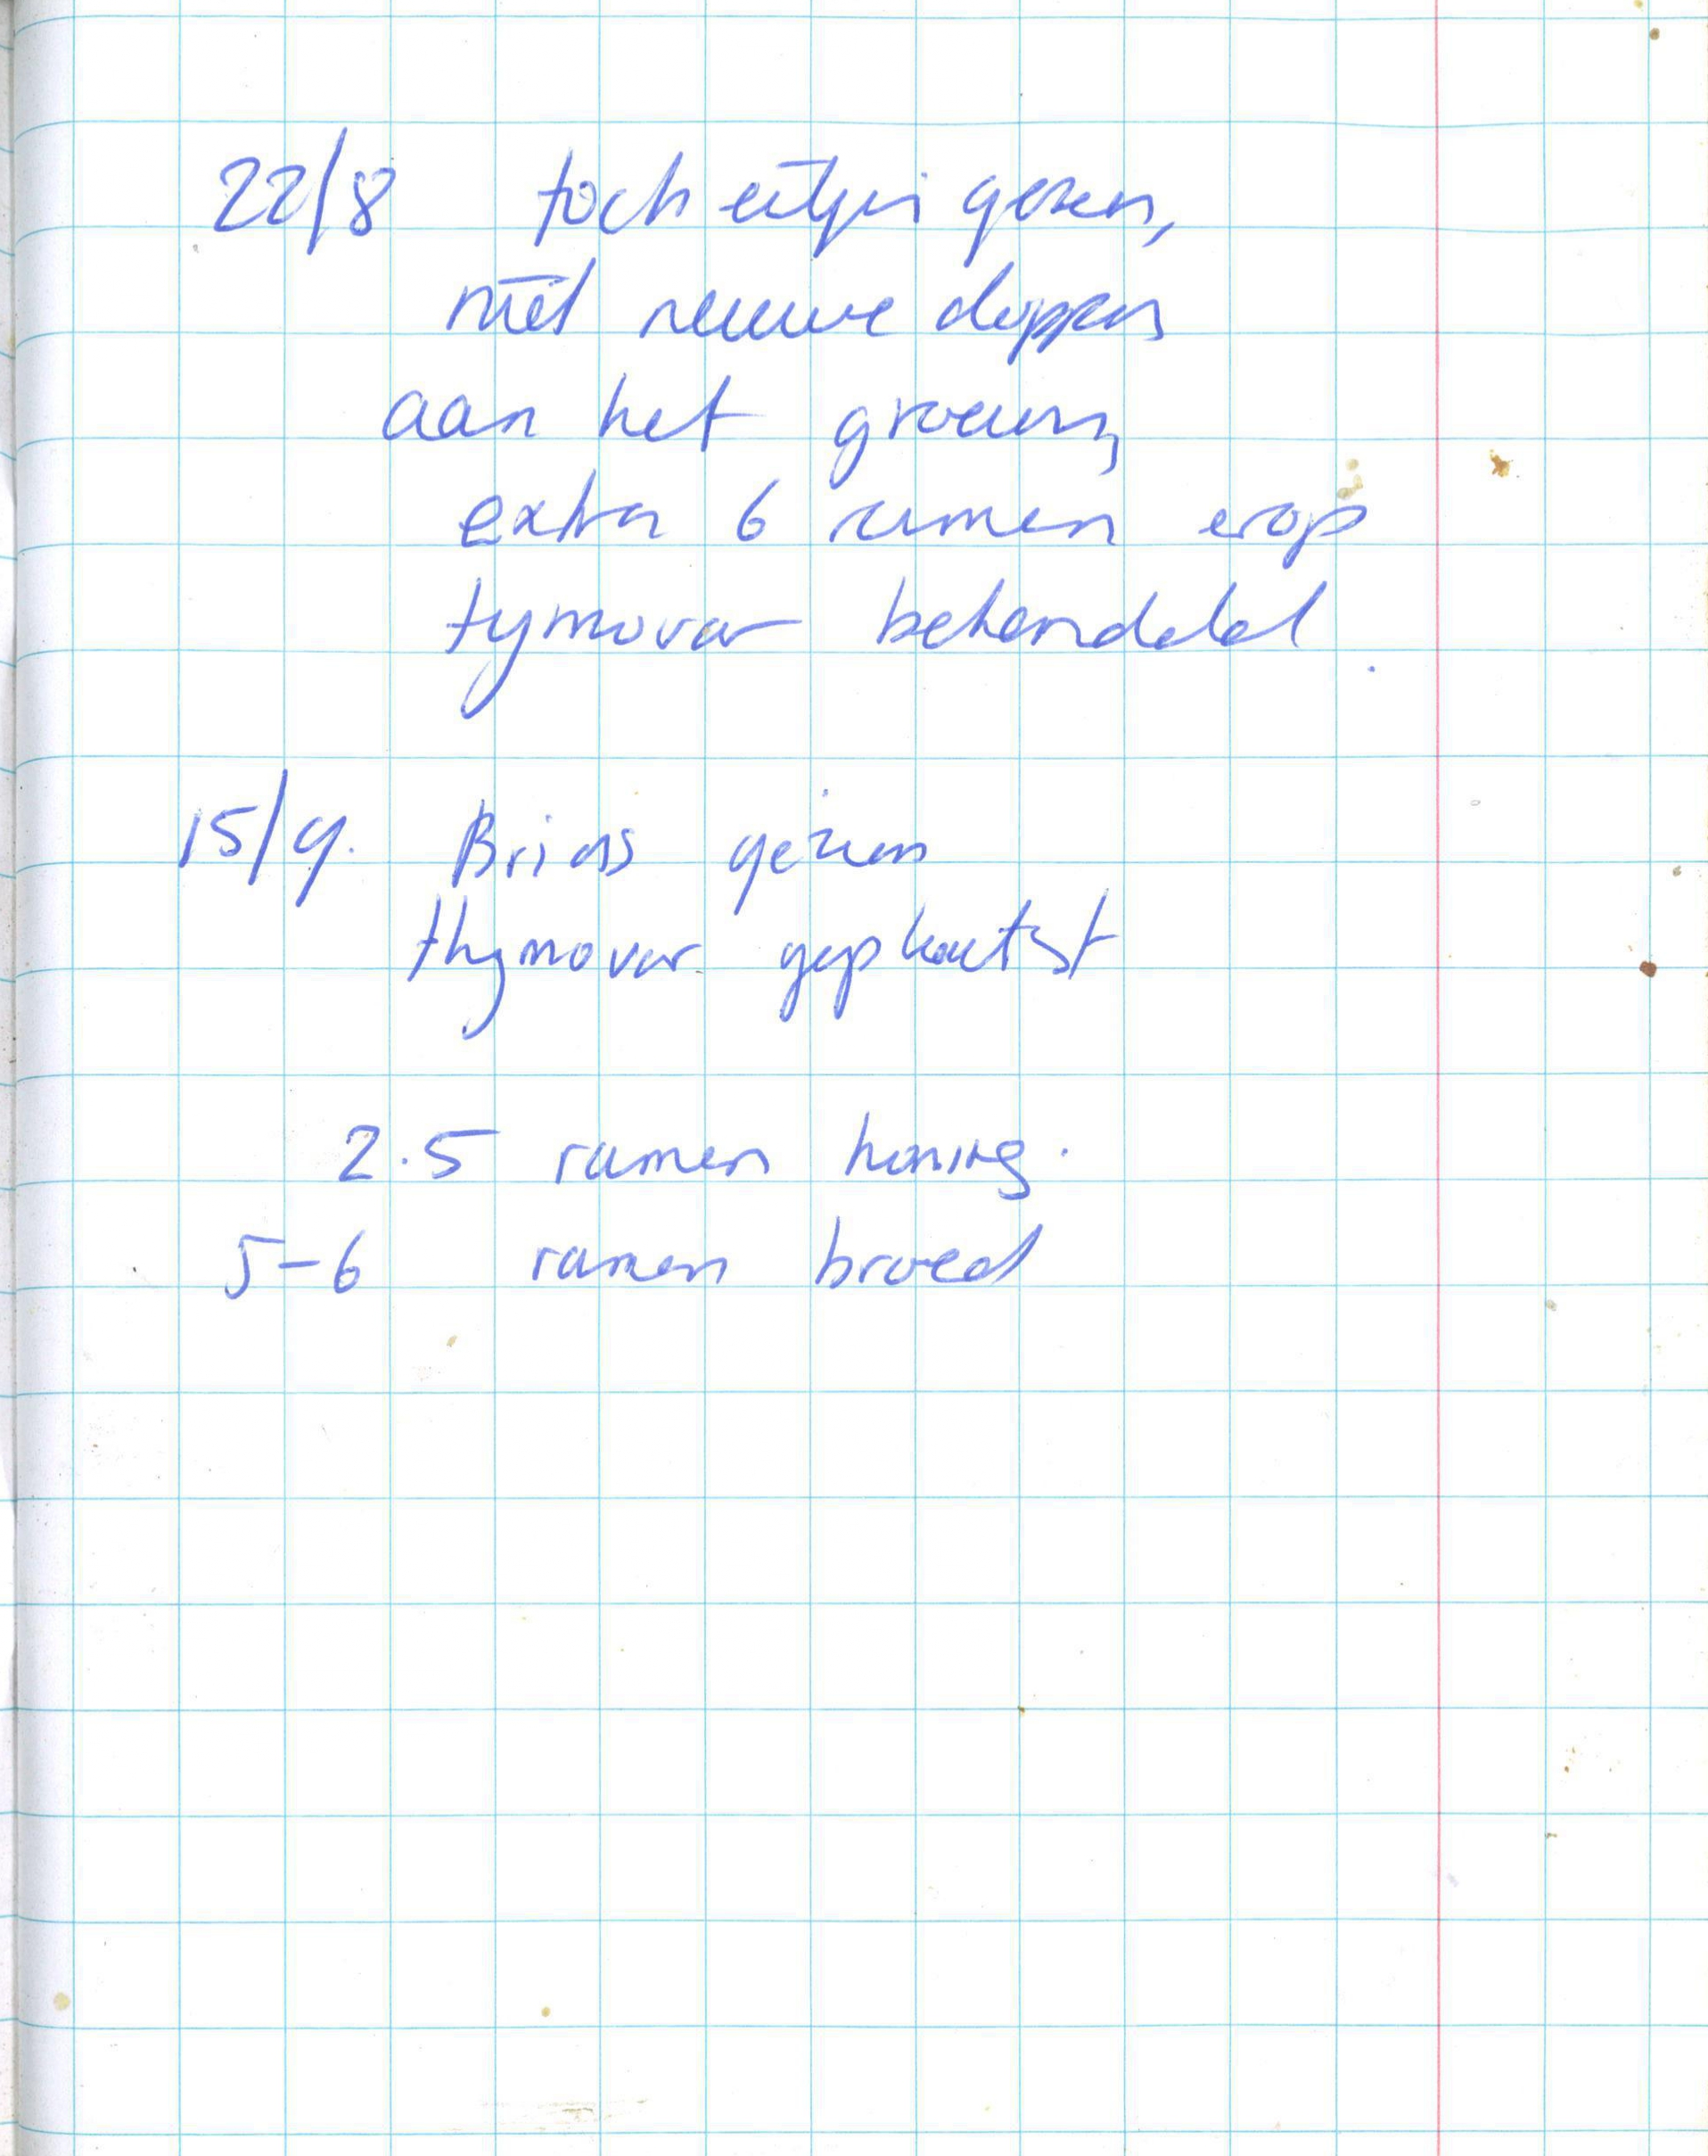 22/8 toch eitjes gezien,
niet nieuwe doppen
aan het groeien,
extra 6 ramen erop
tymovar behandeld.
15/9. gezien
thymovar geplaatst
2.5 ramen honing.
5-6 ramen broed